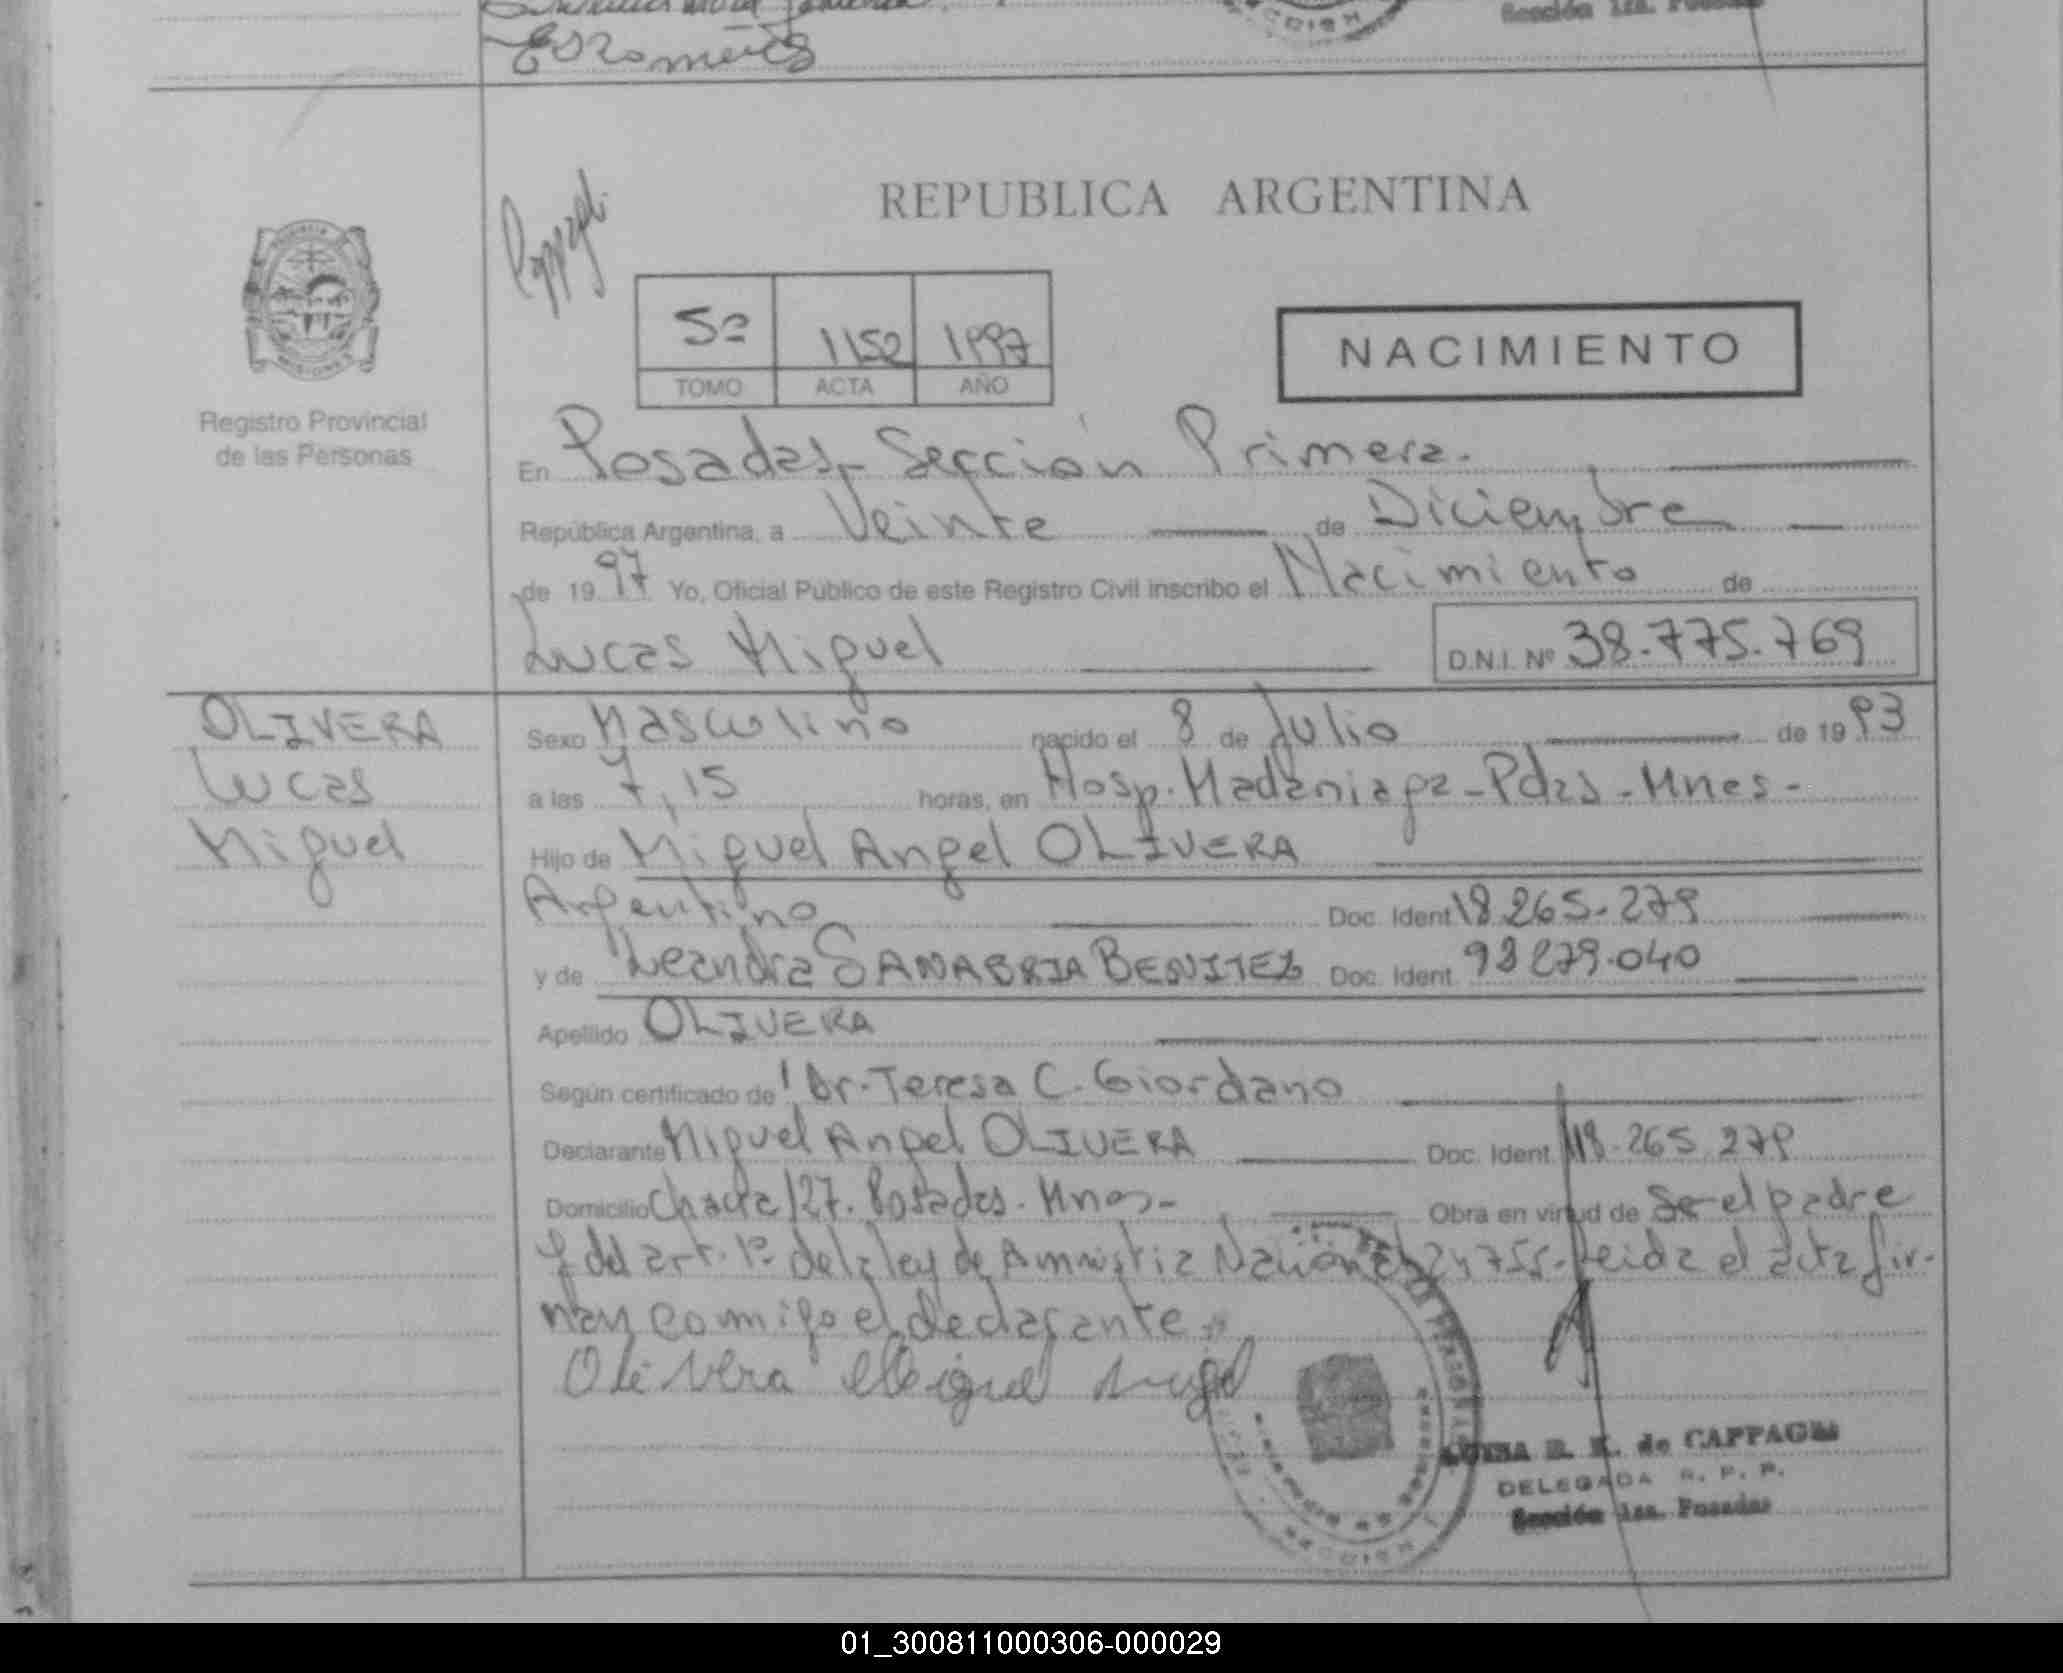 REPUBLICA ARGENTINA
5º 1152 1997
TOMO ACTA AÑO
NACIMIENTO
Registro Provincial
de las Personas
En Posadas, Sección Primera.
República Argentina, a Veinte de Diciembre
de 1997 Yo, Oficial Público de este Registro Civil inscribo el Nacimiento de
Lucas Miguel D.N.I. Nº 38.775.769
OLIVERA
Lucas
Miguel
Sexo Masculino nacido el 8 de Julio de 1993
a las 7,15 horas, en Hosp. Madariaga - Pdas - Mnes -
Hijo de Miguel Angel OLIVERA
Argentino Doc. Ident 18.265.279
y de Leandra SANABRIA BENITEZ Doc. Ident. 93279.040
Apellido OLIVERA
Según certificado de Dr. Teresa C. Giordano
Declarante Miguel Angel OLIVERA Doc. Ident. 18.265.279
Domicilio Chacra 127. Posadas. Mnes - Obra en virtud de Ser el padre
y del art. 1º de la ley de Amnistia Nacional 24755. Leida el acta fir-
man comigo el declarante.
Olivera Miguel Angel
LUISA B. K. de CAPPAGLI
DELEGADA R. P. P.
Sección 1ra. Posadas
01_300811000306-000029